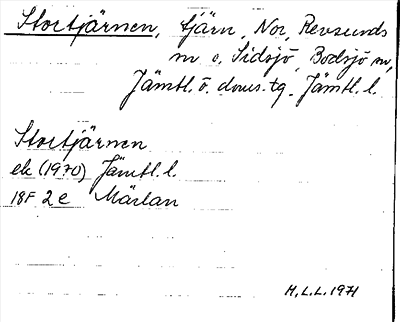 Stortjärnen, tjärn, Nor, Revsunds
m o, Sidsjö, Bodsjö m,
Jämtl. ö. doms. tg. Jämtl. l.
Stortjärnen
ek (1970) Jämtl. l.
18F 2e Märlan
H.L.L. 1971